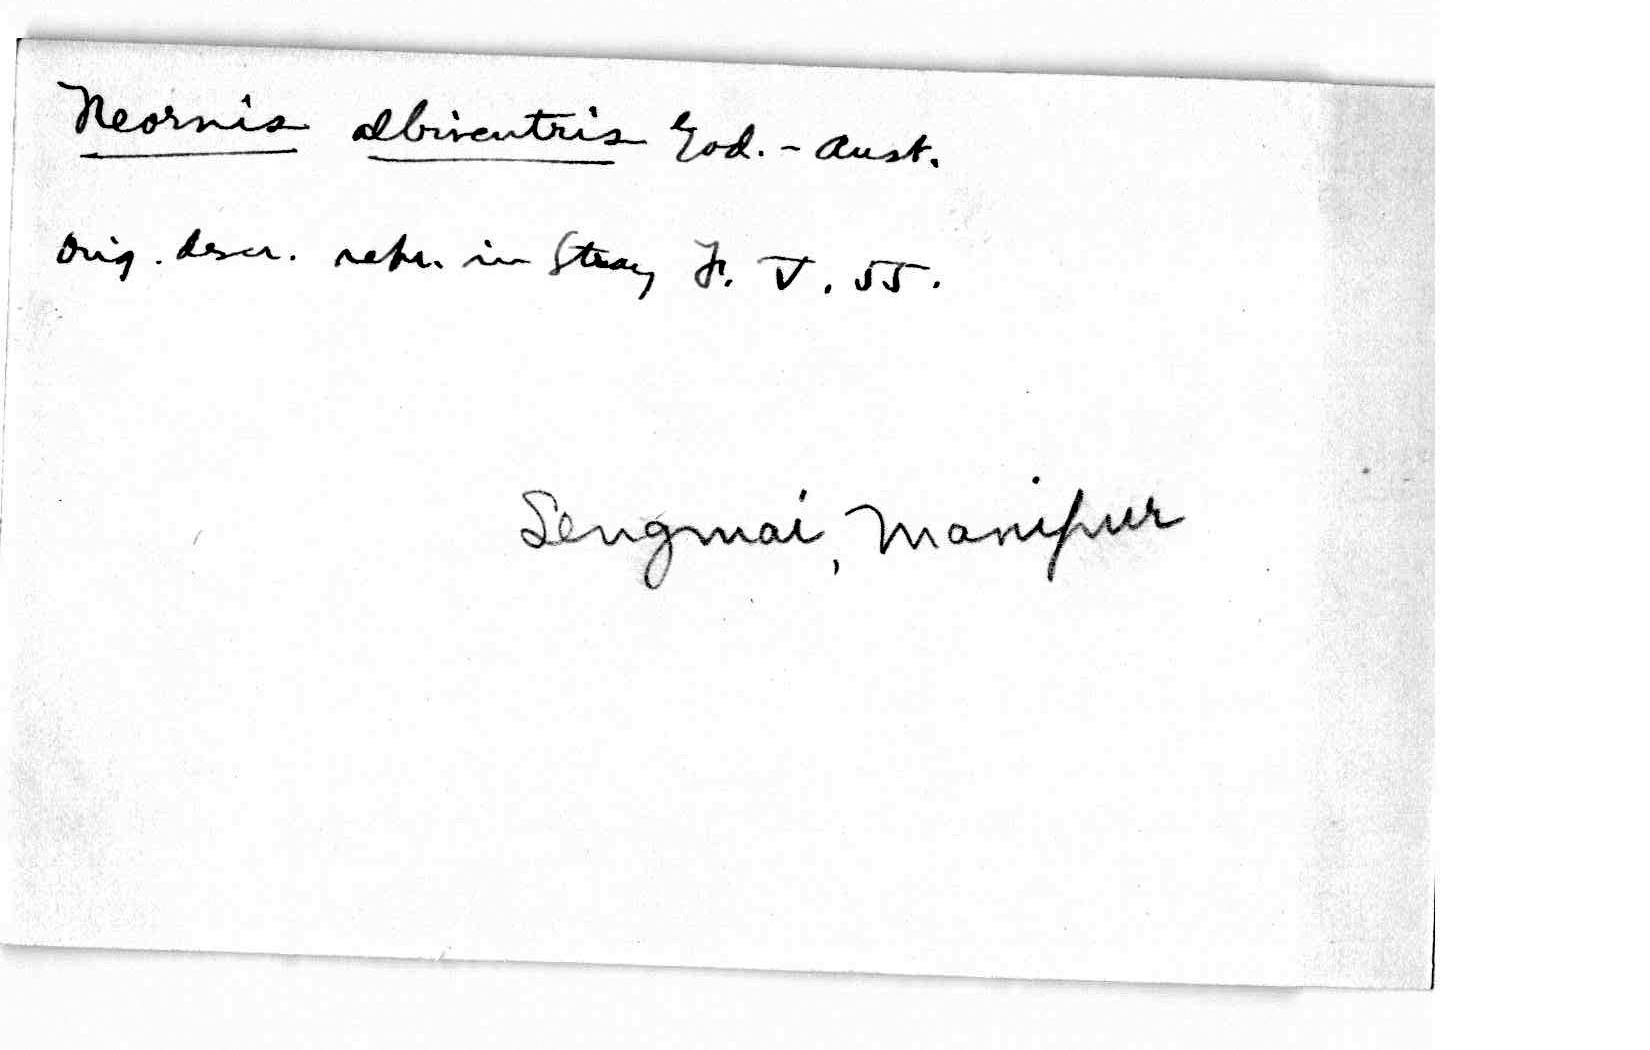 Neornis albiventris God.-Aust.
Orig. descr. repr. in Stray F. V. 55.
Sengmai, Manipur